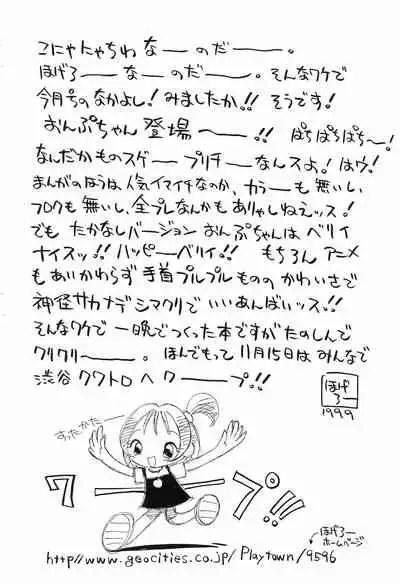 こにゃにゃちわ なーのだーーー。
ほげろーー なーのだーーー。そんなワケで
今月号のなかよし!みましたか!!そうです!
おんぷちゃん 登場 〜ー!! ぱちぱちぱち〜!
なんだかものスゲー プリチーなんスよ!はウ!
まんがのほうは人気イマイチなのか、カラーも無いし
フロクも無いし、全プレなんかもありゃしねえッス!
でも たかなしバージョン おんぷちゃんは ベリイ
ナイスッ!!ハッピーベリイ!! もちろん アニメ
も あいかわらず 手首プルプルものの かわいさで
神径サカナデシマクリで いいあんばいッス!!
そんなワケで 一晩でつくった本ですが たのしんで
クリクリーー。 ほんでもって 11月15日は みんなで
渋谷 クワトロ へ ワーープ!!
ほげろー
1999
すったかた〜
ワープ!!!
ほげろー
ホームページ
http//www.geocities.co.jp/Playtown/9596